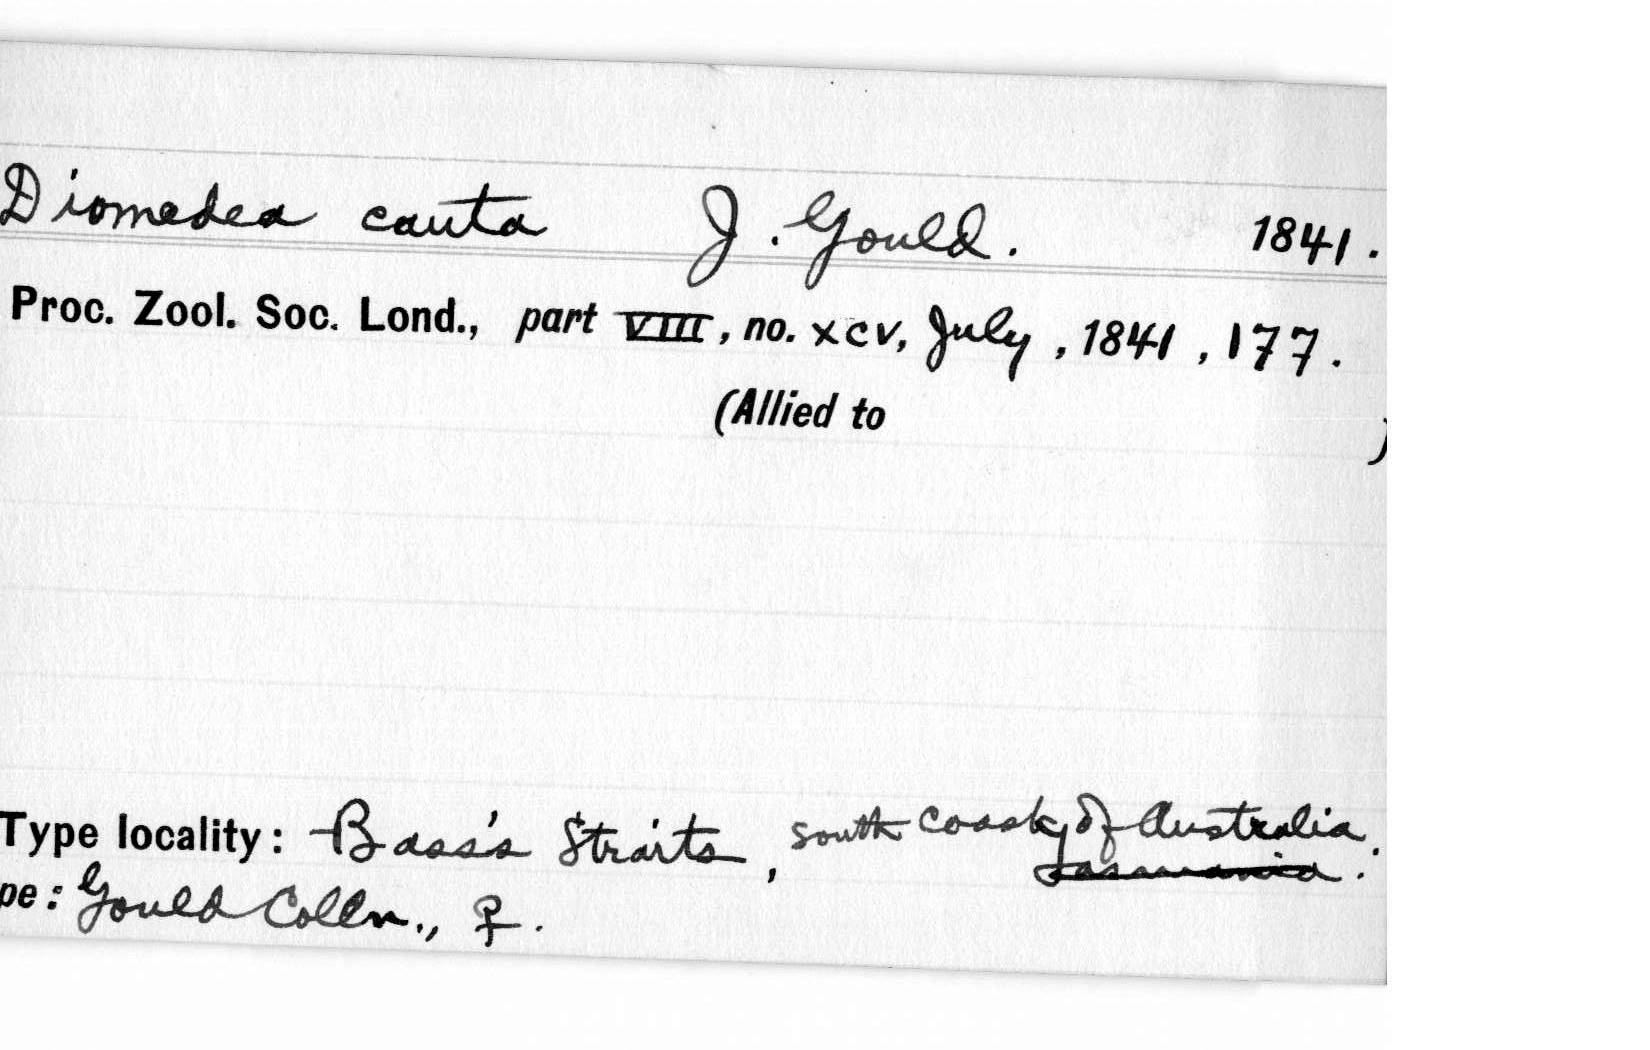 Diomedea cauta J. Gould. 1841.
Proc. Zool. Soc. Lond., part VIII, no. xcv, July, 1841, 177.
(Allied to )
Type locality: Bass's Straits, south coast of Australia.
Tasmania.
pe: Gould Colln., ♀.